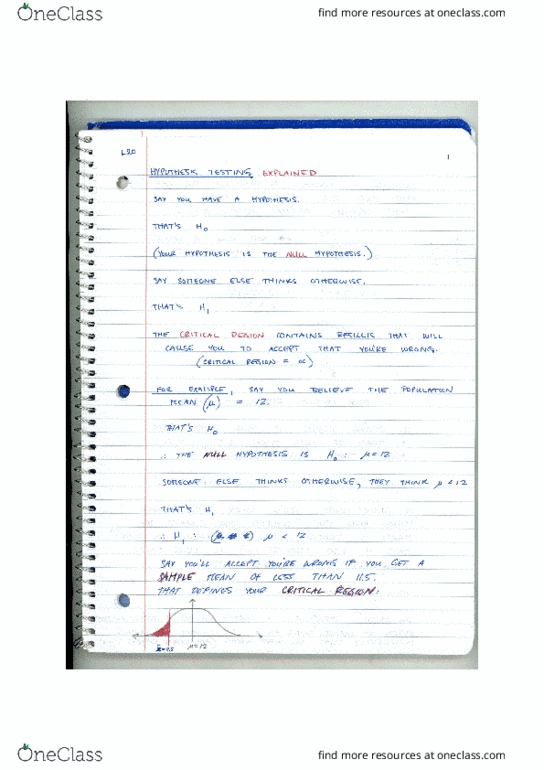 OneClass
find more resources at oneclass.com
L20
1
HYPOTHESIS TESTING EXPLAINED
SAY YOU HAVE A HYPOTHESIS.
THAT'S H₀
(YOUR HYPOTHESIS IS THE NULL HYPOTHESIS.)
SAY SOMEONE ELSE THINKS OTHERWISE.
THAT'S H₁
THE CRITICAL REGION CONTAINS RESULTS THAT WILL
CAUSE YOU TO ACCEPT THAT YOU'RE WRONG.
(CRITICAL REGION = α)
FOR EXAMPLE, SAY YOU BELIEVE THE POPULATION
MEAN (μ) = 12.
THAT'S H₀
∴ THE NULL HYPOTHESIS IS H₀: μ=12
SOMEONE ELSE THINKS OTHERWISE, THEY THINK μ < 12
THAT'S H₁
∴ H₁: μ < 12
SAY YOU'LL ACCEPT YOU'RE WRONG IF YOU GET A
SAMPLE MEAN OF LESS THAN 11.5.
THAT DEFINES YOUR CRITICAL REGION:
μ=12
OneClass
find more resources at oneclass.com